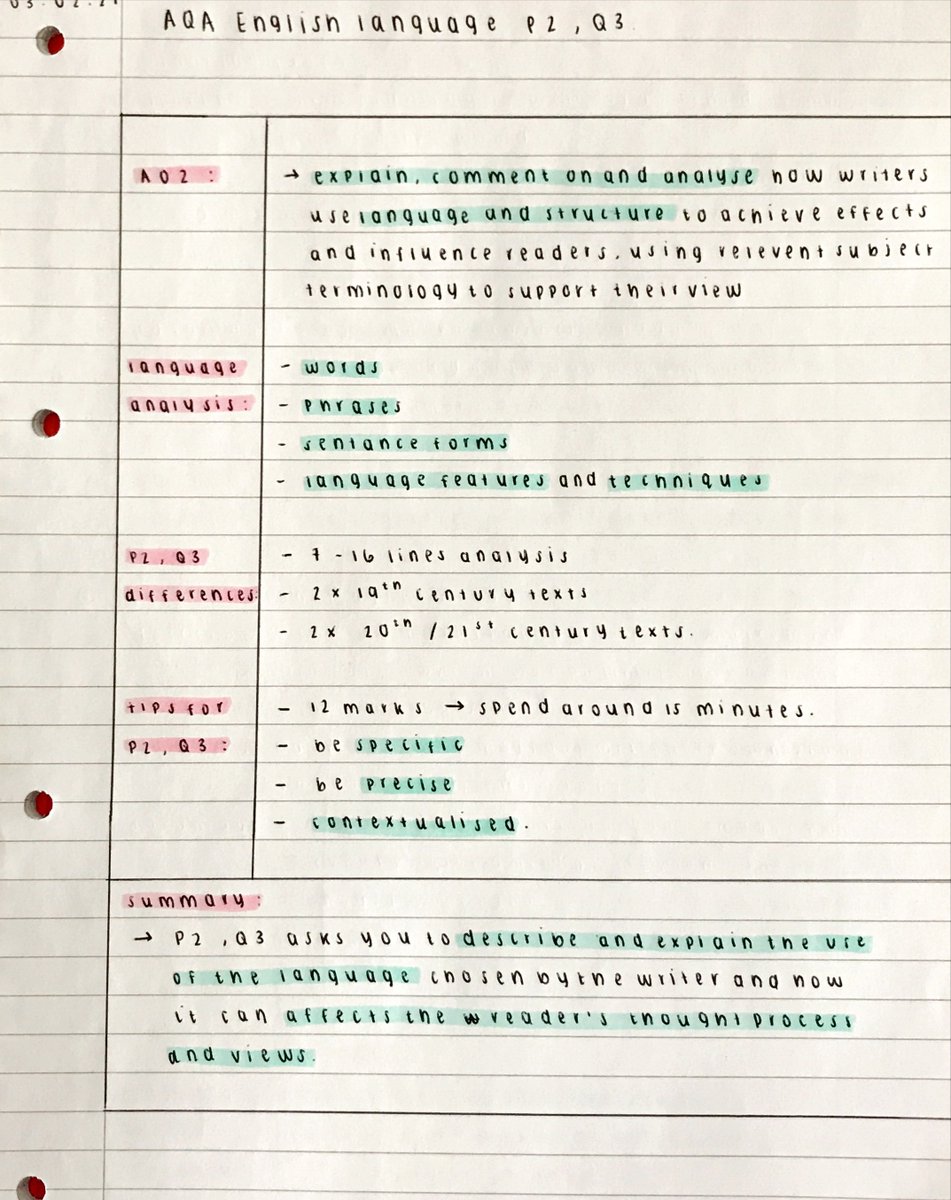 AQA English language P2, Q3.
AO2:
→ explain, comment on and analyse how writers
use language and structure to achieve effects
and influence readers, using relevent subject
terminology to support their view
language
analysis:
- words
- phrases
- sentance forms
- language features and techniques
P2, Q3
differences:
- 7-16 lines analysis
- 2 x 19th century texts
- 2 x 20th / 21st century texts.
tips for
P2, Q3:
- 12 marks → spend around 15 minutes.
- be specific
- be precise
- contextualised.
summary:
→ P2, Q3 asks you to describe and explain the use
of the language chosen by the writer and how
it can affects the reader's thought process
and views.